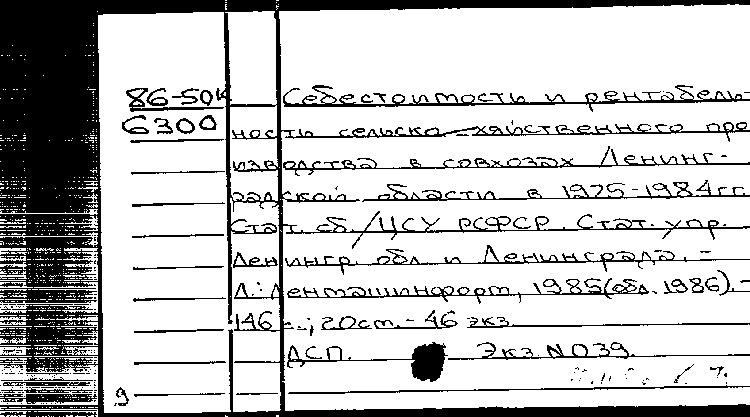 86-50к Себестоимость и рентабель-
6300 ность сельско-хзяйственного про
изводства в совхозах Ленинг-
радской области в 1975-1984гг.
Стат. сб./ЦСУ РСФСР. Стат. упр.
Ленингр. обл. и Ленинграда. -
Л.: Ленташинформ, 1985(обл. 1986). -
146 с.; 20cm. - 46 экз.
ДСП. Экз N039.
9